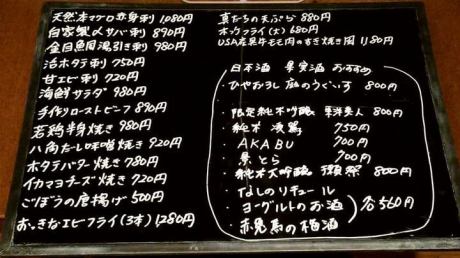 天然本マグロ赤身刺 1,080円
自家製〆サバ刺 890円
金目鯛湯引き刺 980円
活ホタテ刺 750円
甘エビ刺 720円
海鮮サラダ 980円
手作りローストビーフ 890円
若鶏半身焼き 980円
八角だし味噌焼き 920円
ホタテバター焼き 780円
イカマヨチーズ焼き 720円
ごぼうの唐揚げ 500円
おっきなエビフライ(3本) 1280円
真だちの天ぷら 880円
ホッケフライ(大) 680円
USA産黒牛モモ肉のすき焼き風 1180円
日本酒 果実酒 おすすめ
・ひやおろし 庭のうぐいす 800円
・限定純米吟醸 東洋美人 800円
・純米 750円
・AKABU 700円
・景とら 700円
・純米大吟醸 獺祭 800円
・なしのリキュール
・ヨーグルトのお酒 各560円
・赤兎馬の梅酒